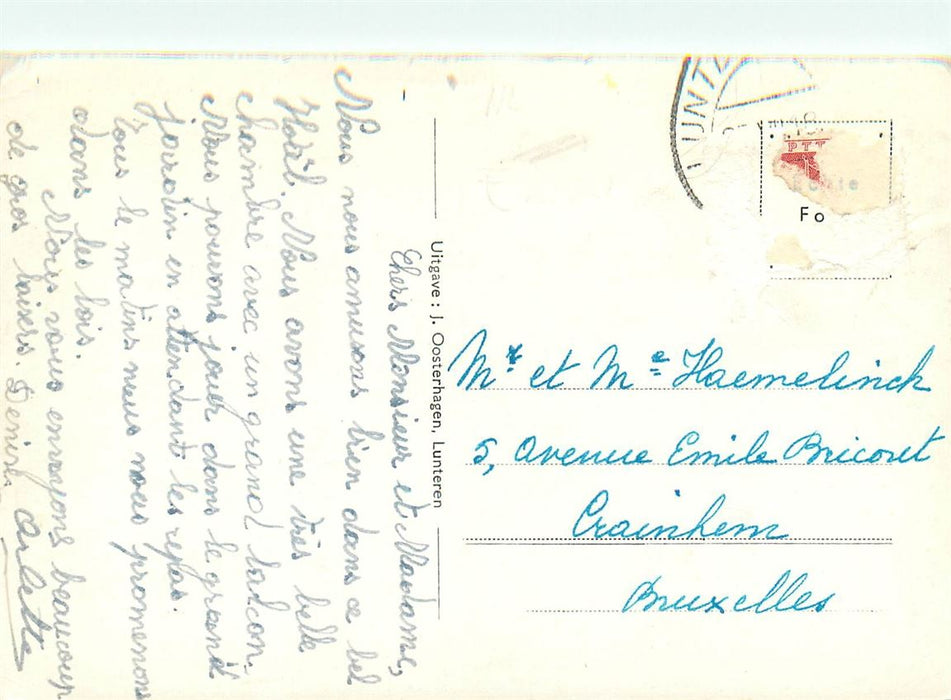 Chers Monsieur et Madame,
Nous nous amusons bien dans ce bel
Hôtel. Nous avons une très belle
chambre avec un grand balcon.
Nous pouvons jouer dans le grand
jardin en attendant les repas.
Tous le matins nous nous promenons
dans les bois.
Nous vous envoyons beaucoup
de gros baisers. Denise
Arlette
Uitgave: J. Oosterhagen, Lunteren
PTT
Fo
Mr et Me Haemelinck
5, avenue Emile Bricout
Crainhem
Bruxelles